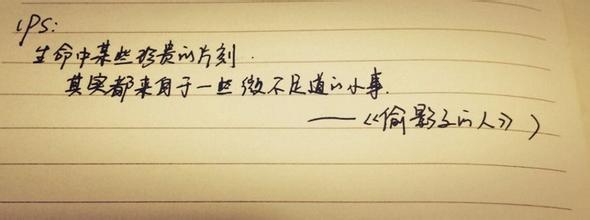 (PS:
生命中某些珍贵的片刻.
其实都来自于一些微不足道的小事.
——《偷影子的人》)